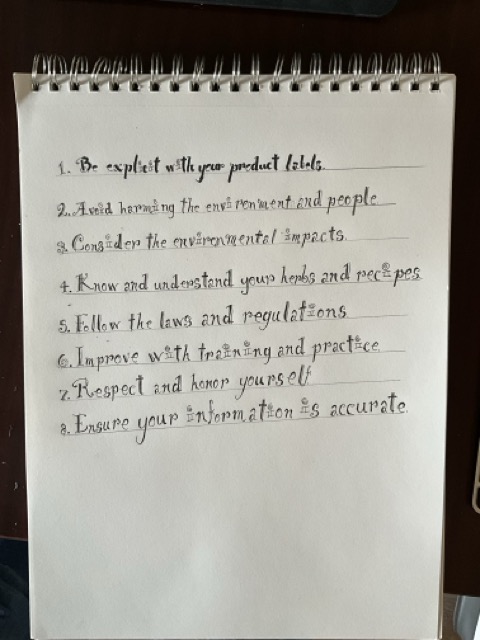 1. Be explicit with your product labels.
2. Avoid harming the environment and people
3. Consider the environmental impacts.
4. Know and understand your herbs and recipes
5. Follow the laws and regulations
6. Improve with training and practice
7. Respect and honor yourself
8. Ensure your information is accurate.